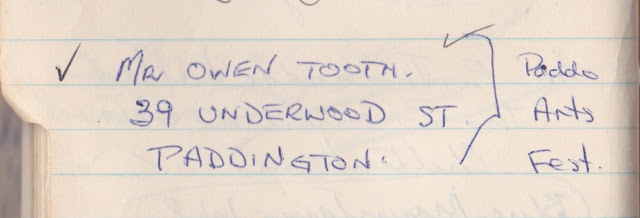 ✓ MR OWEN TOOTH.
39 UNDERWOOD ST.
PADDINGTON.
Paddo
Arts
Fest.